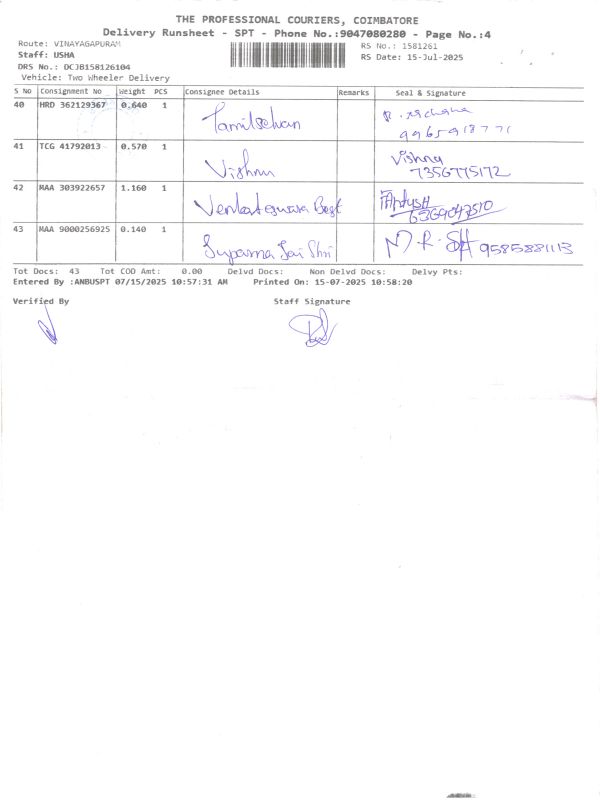 THE PROFESSIONAL COURIERS, COIMBATORE
Delivery Runsheet - SPT - Phone No.:9047080280 - Page No.:4
Route: VINAYAGAPURAM
RS No.: 1581261
Staff: USHA
RS Date: 15-Jul-2025
DRS No.: DCJB158126104
Vehicle: Two Wheeler Delivery
S No Consignment No Weight PCS Consignee Details Remarks Seal & Signature
40 HRD 362129367 0.640 1 Tamilselvan R. Archana
9965918771
41 TCG 41792013 0.570 1 Vishnu Vishnu
7356775172
42 MAA 303922657 1.160 1 Venkateswara
43 MAA 9000256925 0.140 1 Suparna Jai Shri M. R. 9585881113
Tot Docs: 43 Tot COD Amt: 0.00 Delvd Docs: Non Delvd Docs: Delvy Pts:
Entered By :ANBUSPT 07/15/2025 10:57:31 AM Printed On: 15-07-2025 10:58:20
Verified By Staff Signature